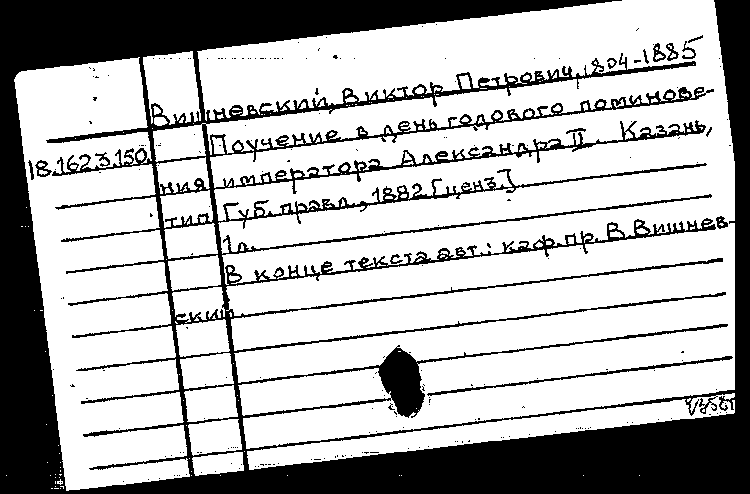 Вишневский, Виктор Петрович, 1804-1885
Поучение в день годового поминове-
18.162.3.150.
ния императора Александра II. Казань,
тип. Губ. правл., 1882 [ценз.].
1л.
В конце текста авт.: каф. пр. В. Вишнев-
ский.